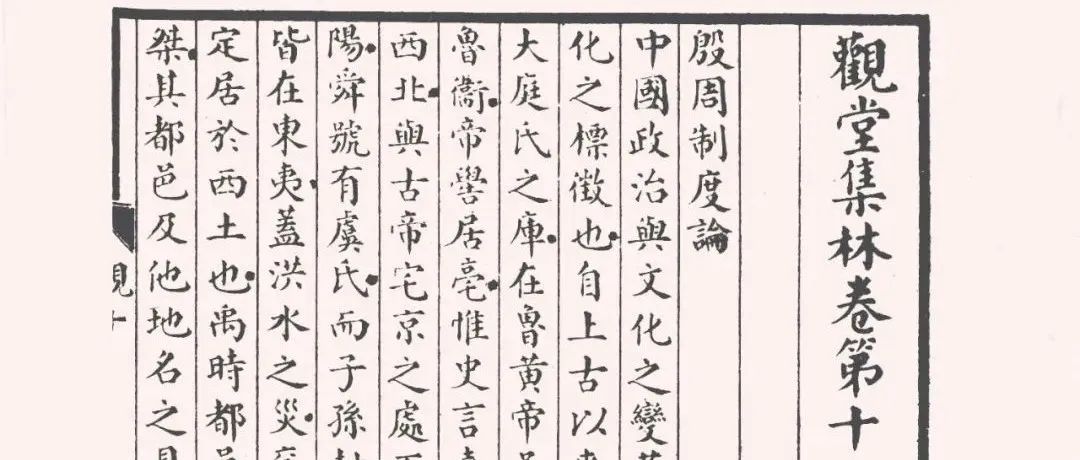 觀堂集林卷第十
殷周制度論
中國政治與文化之變
化之標徵也自上古以
大庭氏之庫在魯黃帝
魯衞帝嚳居亳惟史言
西北與古帝宅京之處
陽舜號有虞氏而子孫
皆在東夷蓋洪水之災
定居於西土也禹時都
桀其都邑及他地名之